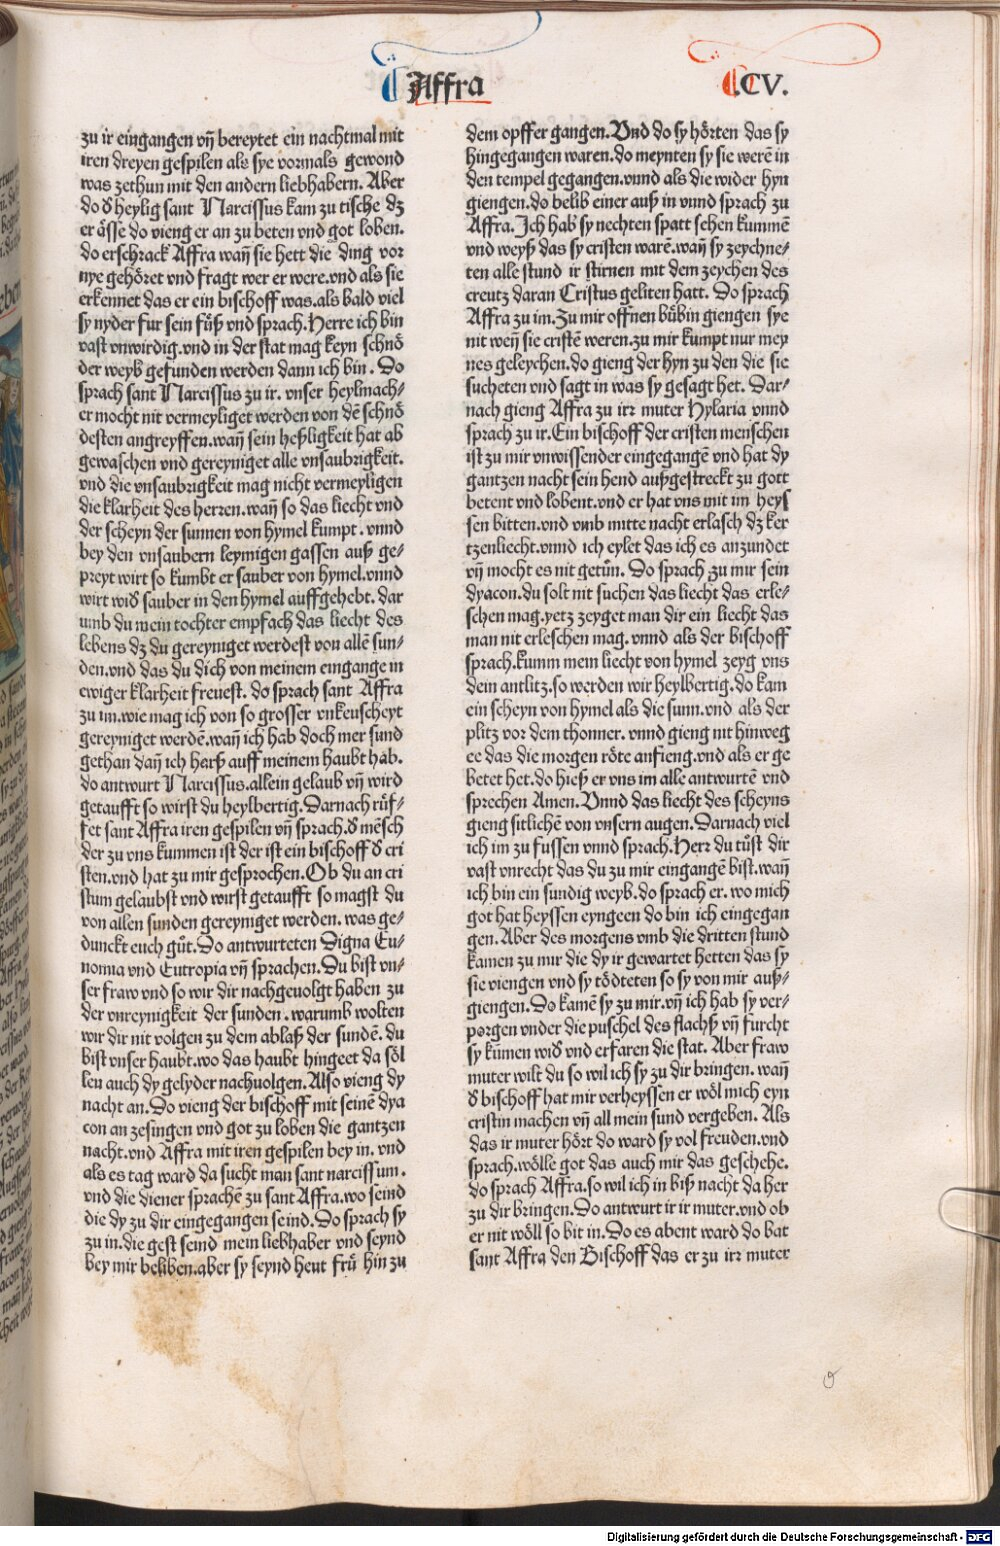 Affra
CV.
zu ir eingangen vn̄ bereytet ein nachtmal mit
iren dreyen gespilen als sye vormals gewond
was zethun mit den andern liebhabern. Aber
do d̕ heylig sant Narcissus kam zu tische dz
er ösſe do vieng er an zu beten vnd got loben.
do erschrack Affra wan̄ sie hett die ding vor
nye gehöret vnd fragt wer er were.vnd als sie
erkennet das er ein bischoff was.als bald viel
sy nyder fur sein füß vnd sprach.Herre ich bin
vast vnwirdig.vnd in der stat mag keyn schnö
der weyb gefunden werden dann ich bin. Do
sprach sant Narcissus zu ir. vnser heylmach⸗
er mocht nit vermeyliget werden von dē schnö
desten angreyffen.wan̄ sein heßligkeit hat ab
gewaschen vnd gereyniget alle vnsaubrigkeit.
vnd die vnsaubrigkeit mag nicht vermeyligen
die klarheit des herren.wan̄ so das liecht vnd
der scheyn der sunnen von hymel kumpt. vnnd
bey den vnsaubern leymigen gassen auß ge⸗
preyt wirt so kumbt er sauber von hymel.vnnd
wirt wid̕ sauber in den hymel auffgehebt. dar
umb du mein tochter empfach das liecht des
lebens dz du gereyniget werdest von allē sun⸗
den.vnd das du dich von meinem eingange in
ewiger klarheit freuest. do sprach sant Affra
zu im.wie mag ich von so grosser vnkeuscheyt
gereyniget werdē.wan̄ ich hab doch mer sund
gethan dan̄ ich harß auff meinem haubt hab.
do antwurt Narcissus.allein gelaub vn̄ wird
getaufft so wirst du heylbertig. Darnach rüf⸗
fet sant Affra iren gespilen vn̄ sprach.d̕ mēsch
der zu vns kummen ist der ist ein bischoff d̕ cri
sten.vnd hat zu mir gesprochen. Ob du an cri
stum gelaubst vnd wirst getaufft so magst du
von allen sunden gereyniget werden. was ge⸗
dunckt euch gůt. Do antwurteten Digna Eu⸗
nomia vnd Eutropia vn̄ sprachen. Du bist vn⸗
ser fraw vnd so wir dir nachgeuolgt haben zu
der vnreynigkeit der sunden. warumb wolten
wir dir nit volgen zu dem ablaß der sundē. du
bist vnser haubt.wo das haubt hingeet da söl
len auch dy gelyder nachuolgen. Also vieng dy
nacht an. Do vieng der bischoff mit seinē dya
con an zesingen vnd got zu loben die gantzen
nacht.vnd Affra mit iren gespilen bey in. vnd
als es tag ward da sucht man sant narcissum.
vnd die diener sprachē zu sant Affra.wo seind
die dy zu dir eingegangen seind. Do sprach sy
zu in.die gest seind mein liebhaber vnd seynd
bey mir beliben.aber sy seynd heut frů hin zu
dem opffer gangen. Vnd do sy hörten das sy
hingegangen waren.do meynten sy sie werē in
den tempel gegangen.vnnd als die wider hyn
giengen.do belib einer auß in vnnd sprach zu
Affra. Ich hab sy nechten spatt sehen kummē
vnd weyß das sy cristen warē.wan̄ sy zeychne⸗
ten alle stund ir stirnen mit dem zeychen des
creutz daran Cristus geliten hatt. Do sprach
Affra zu im.Zu mir offnen bübin giengen sye
nit wen̄ sie cristē weren.zu mir kumpt nur mey
nes geleychen.do gieng der hyn zu den die sie
sucheten vnd sagt in was sy gesagt het. Dar⸗
nach gieng Affra zu irr muter Hylaria vnnd
sprach zu ir. Ein bischoff der cristen menschen
ist zu mir vnwissender eingegangē vnd hat dy
gantzen nacht sein hend außgestreckt zu gott
betent vnd lobent.vnd er hat vns mit im heys
sen bitten.vnd vmb mitte nacht erlasch dz ker
tzenliecht.vnnd ich eylet das ich es anzundet
vn̄ mocht es nit getůn. Do sprach zu mir sein
dyacon.du solt nit suchen das liecht das erle⸗
schen mag.yetz zeyget man dir ein liecht das
man nit erleschen mag. vnnd als der bischoff
sprach.kumm mein liecht von hymel zeyg vns
dein antlitz.so werden wir heylbertig.do kam
ein scheyn von hymel als die sunn.vnd als der
plitz vor dem thonner. vnnd gieng nit hinweg
ee das die morgen röte anfieng.vnd als er ge
betet het.do hieß er vns im alle antwurtē vnd
sprechen Amen. Vnnd das liecht des scheyns
gieng sitlichē von vnsern augen. Darnach viel
ich im zu fussen vnnd sprach. Herr du tůst dir
vast vnrecht das du zu mir eingangē bist.wan̄
ich bin ein sundig weyb.do sprach er. wo mich
got hat heyssen eyngeen do bin ich eingegan
gen. Aber des morgens vmb die dritten stund
kamen zu mir die dy ir gewartet hetten das sy
sie viengen vnd sy tödteten so sy von mir auß⸗
giengen. Do kamē sy zu mir.vn̄ ich hab sy ver⸗
porgen vnder die puschel des flachß vn̄ furcht
sy kümen wid̕ vnd erfaren die stat. Aber fraw
muter wilt du so wil ich sy zu dir bringen. wan̄
d̕ bischoff hat mir verheyssen er wöl mich eyn
cristin machen vn̄ all mein sund vergeben. Als
das ir muter hört do ward sy vol freuden.vnd
sprach.wölle got das auch mir das geschehe.
do sprach Affra.so wil ich in diß nacht da her
zu dir bringen. Do antwurt ir ir muter.vnd ob
er nit wöll so bit in. Do es abent ward do bat
sant Affra den Bischoff das er zu irr muter
Digitalisierung gefördert durch die Deutsche Forschungsgemeinschaft - DFG